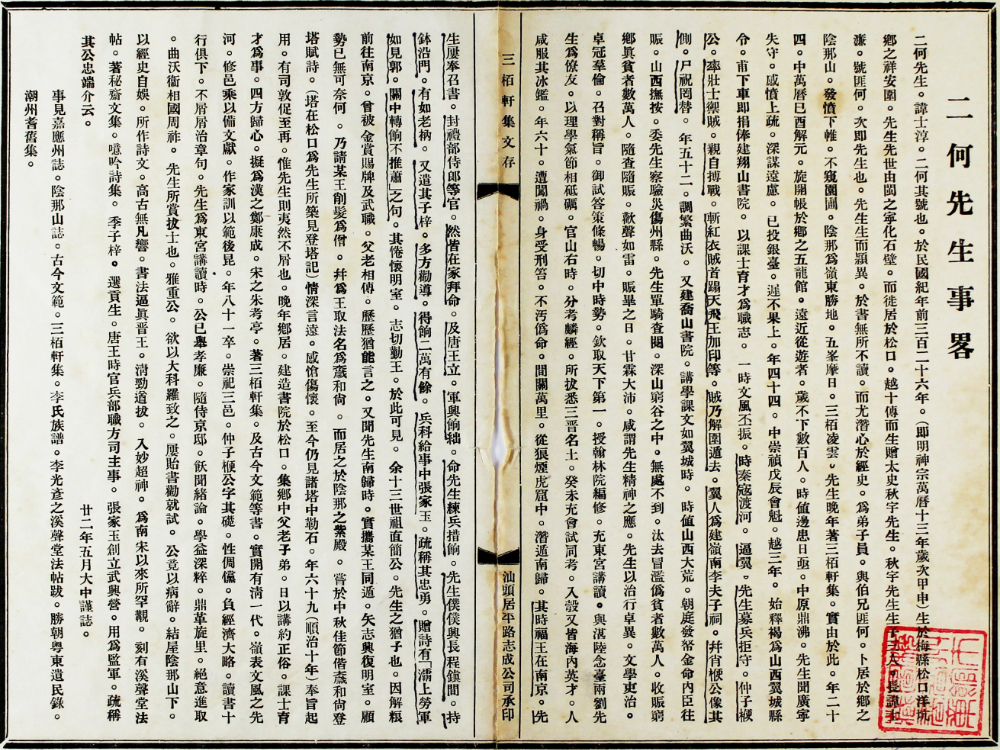 二何先生事畧
二何先生。諱士淳。二何其號也。於民國紀年前三百二十六年。(即明神宗萬曆十三年歲次甲申)生於梅縣松口洋坑
鄉之祥安圍。先生先世由閩之寧化石壁。而徙居於松口。越十傳而生贈太史秋宇先生。秋宇先生生子
濂。號匪何。次即先生也。先生生而穎異。於書無所不讀。而尤潛心於經史。為弟子員。與伯兄匪何。卜居於鄉之
陰那山。發憤下帷。不窺園圃。陰那為嶺東勝地。五峯摩日。三栢凌雲。先生晚年著三栢軒集。實由於此。年二十
四。中萬曆已酉解元。旋開帳於鄉之五龍館。遠近從遊者。歲不下數百人。時值邊患日亟。中原鼎沸。先生聞廣寧
失守。感憤上疏。深謀遠慮。已投銀臺。遲不果上。年四十四。中崇禎戊辰會魁。越三年。始釋褐為山西翼城縣
令。甫下車即捐俸建翔山書院。以課士育才為職志。一時文風丕振。時秦寇渡河。逼翼。先生募兵拒守。仲子楩
公。率壯士禦賊。親自搏戰。斬紅衣賊首蹋天飛王加印等。賊乃解圍遁去。翼人為建嶺南李夫子祠。幷肖楩公像其
側。尸祝罔替。年五十二。調繁曲沃。又建喬山書院。講學課文如翼城時。時值山西大荒。朝庭發帑金命內臣往
賑。山西撫按。委先生察驗災傷州縣。先生單騎查閱。深山窮谷之中。無處不到。汰去冒濫僞貧者數萬人。收賑窮
鄉眞貧者數萬人。隨查隨賑。歡聲如雷。賑畢之日。甘霖大沛。咸謂先生精神之應。先生以治行卓異。文學東治。
卓冠羣倫。召對稱旨。御試答策條暢。切中時勢。欽取天下第一。授翰林院編修。充東宮講讀。與湛陸念臺兩劉先
生為僚友。以理學氣節相砥礪。官山右時。分考麟經。所拔悉三晉名士。癸未充會試同考。入彀又皆海內英才。人
咸服其冰鑑。年六十。遭闖禍。身受刑笞。不汚僞命。間關萬里。從狼煙虎窟中。潛遁南歸。其時福王在南京。先
三栢軒集文存
汕頭居平路志成公司承印
生屢奉召書。封禮部侍郎等官。然皆在家拜命。及唐王立。軍興餉絀。命先生練兵措餉。先生僕僕興長程鎮間。持
鉢沿門。有如老衲。又遣其子梓。多方勸導。得餉二萬有餘。兵科給事中張家玉。疏稱其忠勇。贈詩有「灞上勞軍
如見郭。關中轉餉不推蕭」之句。其倦懷明室。志切勤王。於此可見。余十三世祖直簡公。先生之猶子也。因解粮
前往南京。曾被金賞賜牌及武職。父老相傳。歷歷猶能言之。又聞先生南歸時。實攜某王同遁。矢志興復明室。顧
勢已無可奈何。乃請某王削髮為僧。幷為王取法名為薇和尙。而居之於陰那之紫殿。嘗於中秋佳節偕薇和尙登
塔賦詩。(塔在松口為先生所築見登塔記)情深言遠。感愴傷懷。至今仍見諸塔中勒石。年六十九(順治十年)奉旨起
用。有司敦促至再。惟先生則夷然不屑也。晚年鄉居。建造書院於松口。集鄉中父老子弟。日以講約正俗。課士育
才為事。四方歸心。擬為漢之鄭康成。宋之朱考亭。著三栢軒集。及古今文範等書。實開有清一代。嶺表文風之先
河。修邑乘以備文獻。作家訓以範後昆。年八十一卒。崇祀三邑。仲子楩公字其礎。性倜儻。負經濟大略。讀書十
行俱下。不屑屑治章句。先生為東宮講讀時。公已舉孝廉。隨侍京邸。飫聞緒論。學益深粹。鼎革旋里。絕意進取
。曲沃衞相國周祚。先生所賞拔士也。雅重公。欲以大科羅致之。屢貽書勸就試。公竟以病辭。結屋陰那山下。
以經史自娛。所作詩文。高古無凡響。書法逼眞晉王。淸勁遒拔。入妙超神。為南宋以來所罕覯。刻有溪聲堂法
帖。著秘齋文集。噫吟詩集。季子梓。選貢生。唐王時官兵部職方司主事。張家玉創立武興營。用為監軍。疏稱
其公忠端介云。
廿二年五月大中謹誌。
事見嘉應州誌。陰那山誌。古今文範。三栢軒集。李氏族譜。李光彥之溪聲堂法帖跋。勝朝粤東遺民錄。
潮州耆舊集。